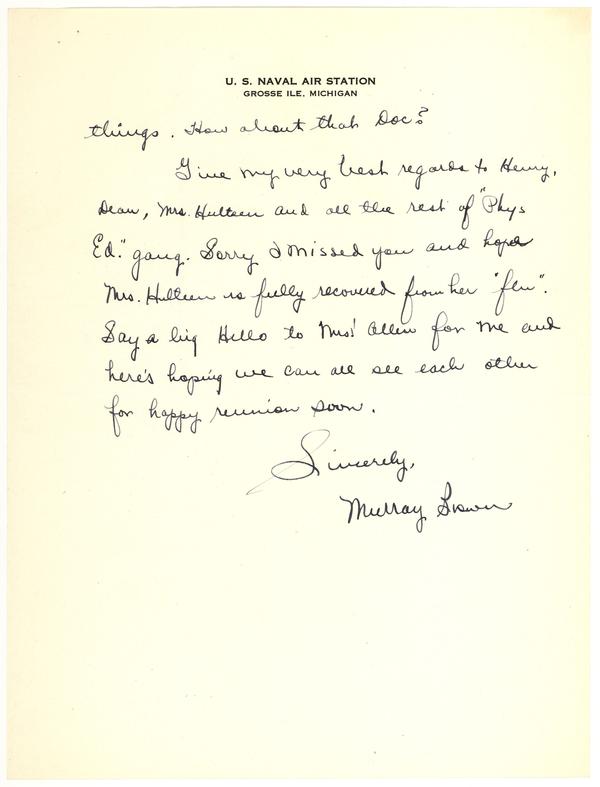 U. S. NAVAL AIR STATION
GROSSE ILE, MICHIGAN
things. How about that Doc?
Give my very best regards to Henry,
Dean, Mrs. Hulteen and all the rest of "Phys
Ed." gang. Sorry I missed you and hope
Mrs. Hulteen is fully recovered from her "flu".
Say a big Hello to Mrs. Allen for me and
here's hoping we can all see each other
for happy reunion soon.
Sincerely,
Murray